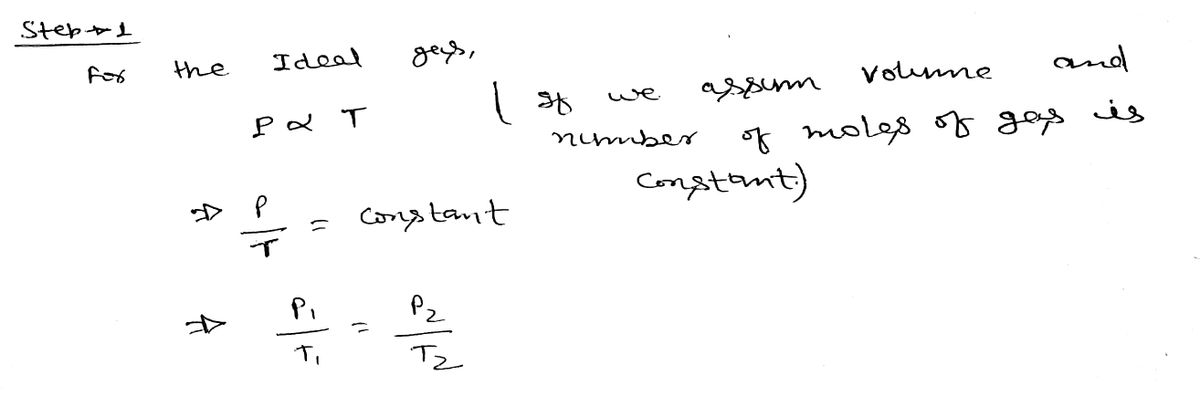 Step → 1
For the Ideal gas, (If we assum volume and
P ∝ T number of moles of gas is
constant)
⇒ P/T = constant
⇒ P₁/T₁ = P₂/T₂